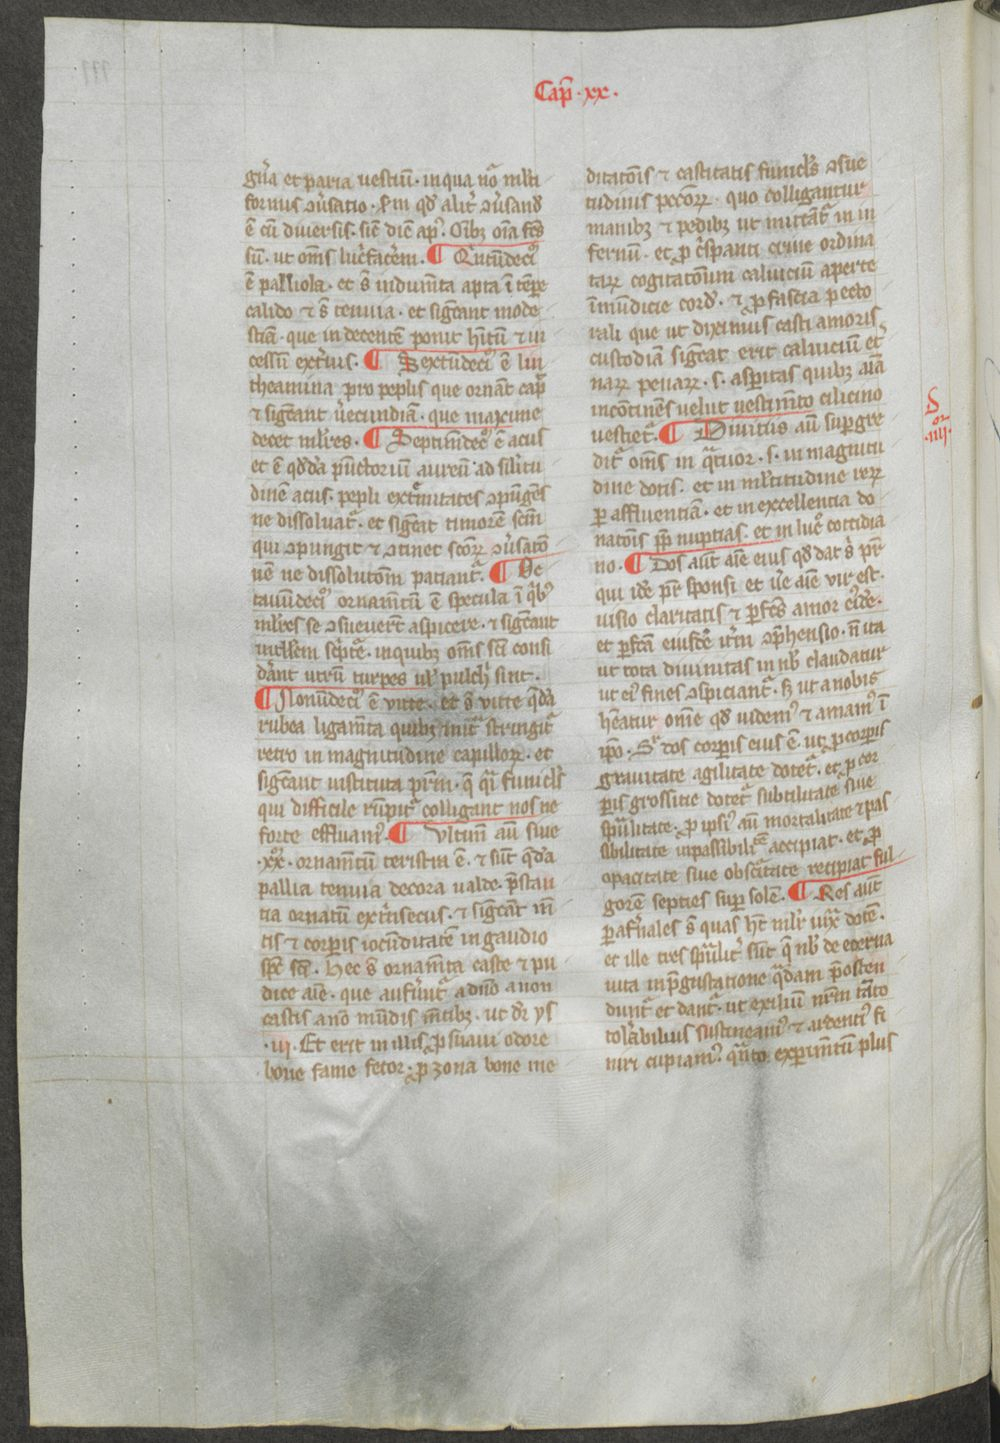 Cap̃ · xx ·
gña et paria vestiũ · in qua nõ ml̃ti
formis ꝯũsatio · sʒ in qđ alit̃ ꝯũsanđ
ẽ cũ diversis · sic̃ dic̃ ap̃s · Oĩbꝫ oĩa fc̃s
sũ · ut om̃s luc̃facerẽ · ¶ Qͥntũdecĩ
ẽ palliola · et s̃ indum̃ta apta ĩ tẽpe
calido ⁊ s̃ tenuia · et sigc̃ant mode
stiã · que in decentẽ ponit hĩtũ ⁊ in
cessũ exterius · ¶ Sextũdecĩ ẽ lin
theamina pro peplis que ornãt cap̃
⁊ sigc̃ant ṽecundiã · que maxime
decet ml̃res · ¶ Septimũdecĩ ẽ acus
et ẽ qđdã pũctoriũ aureũ ad silĩtu
dinẽ acus · pepli extͥmitates ꝯpũgẽs
ne dissoluat̃ · et sigc̃at timorẽ sc̃m
qui ꝯpungit ⁊ ꝯtinet sc̃oꝝ ꝯũsatõ
nẽ ne dissolutõm patiant̃ · ¶ Oc
tauũdecĩ ornam̃tũ ẽ specula ĩ qͥbꝫ
ml̃res se ꝯsueuer̃t aspicere · ⁊ sigc̃ant
intl̃lem sc̃ptẽ · in quibꝫ om̃s sc̃i consi
der̃nt utrũ turpes ul̃ pulch̃ sint ·
¶ Nonũdecĩ ẽ vitte · et s̃ vitte qͣdã
rubea ligam̃ta quibꝫ mit̃ stringit̃
retro in magnitudine capilloꝝ · et
sigc̃ant instituta pr̃m · qͣ qͣi funicl̃s
qui difficile rũpit̃ colligant nos ne
forte effluam⁹ · ¶ Vltimũ aũ siue
·xx· ornam̃tũ teristra ẽ · ⁊ sũt qͣdã
pallia tenuia decora ualde · p̃stan
tia ornatũ extͥnsecus · ⁊ sigc̃ãt mẽ
tis ⁊ corp̃is iocũditatẽ in gaudio
sp̃c sc̃i · Hec s̃ ornam̃ta caste ⁊ pu
dice aĩe · que aufer̃nt̃ a dñō a non
castis a nõ mũdis m̃tibꝫ · ut dr̃ ys
· iii · Et erit in illis ꝓ suaui odore
bone fame fetor · ꝓ zona bone me
ditatõis ⁊ castitatis funicl̃s ꝯsue
tudinis pcc̃oꝝ · quo colligantur
manibꝫ ⁊ pedibꝫ ut mittãt̃ in in
fernũ · et ꝓ c̃spanti crine ordina
taꝝ cogitatõnum caluiciũ aperte
ĩmũdicie cordis · ⁊ ꝓ fascia pecto
rali que ut diximus casti amoris
custodiã sigc̃at erit caluiciũ et̃
naꝝ penaꝝ · s · asp̃itas quibꝫ aĩa
incõtinẽs uelut vestim̃to cilicino
vestiet̃ · ¶ Diuitiis aũ sup̃gre
S
or
· iiii ·
dit̃ om̃s in qͣtuor · s · in magnitu
dine dotis · et in ml̃titudine reꝝ
ꝑ affluentiã · et in excellentia do
natõis ꝓp̃ nuptias · et in luc̃ cottidia
no · ¶ Dos aũt aĩe eius qđ dat s̃ pr̃
qui idẽ pr̃ sponsi et ũe aĩe vir est ·
uisio claritatis ⁊ ꝑfc̃s amor ei⁹dẽ ·
et ꝑfc̃a eiusdẽ ut̃m ꝯp̃hensio · ñ ita
ut tota diuinitas in nb̃ claudatur
ut ei⁹ fines ꝯspiciant̃ · sʒ ut a nobis
hẽatur om̃e qđ uidem⁹ ⁊ amam⁹ ĩ
ip̃o · Sʳ dos corp̃is eius ẽ · ut ꝓ corp̃is
grauitate agilitate dotet̃ · et ꝓ cor
p̃is grossitie dotet̃ subtilitate siue
sp̃ũlitate · ꝓ ipsi⁹ aũ mortalitate ⁊ pas
sibilitate inpassibilitẽ accipiat · et ꝓ
opacitate siue obscͥtate recipiat ful
gorẽ septies sup̃ solẽ · ¶ Res aũt
ꝑafr̃nales s̃ quas ht̃ ml̃r iuxͣ dotẽ ·
et ille tres sp̃ũlit̃ sũt q̃ nb̃ de eterna
uita in p̃gustatione qͣdam p̃osten
dunt̃ et dant̃ · ut exiliũ nr̃m tãto
tol̃abilius sustineam⁹ ⁊ ardenti⁹ fi
niri cupiam⁹ · qͣnto exp̃im̃tũ plus